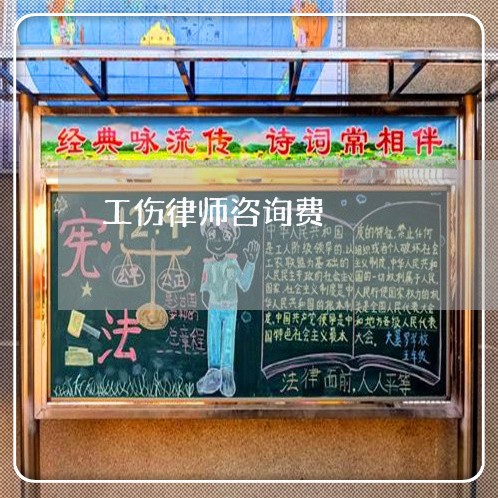 经典咏流传 诗词常相伴
工伤律师咨询费
12.4
宪
法
公平
公正
总章程
中华人民共和国
是工人阶级领导的,以
工农联盟为基础的
人民民主专政的社会主义
国家,社会主义制度是中
华人民共和国的根本制
度,中国共产党领导是中
国特色社会主义最本
质的特征,禁止任何
组织或者个人破坏社会
主义制度,中华人民共和
国的一切权利属于人民,
人民行使国家权力的机
关是全国人民代表大会
和地方各级人民代表
大会.
五年级
法律面前,人人平等